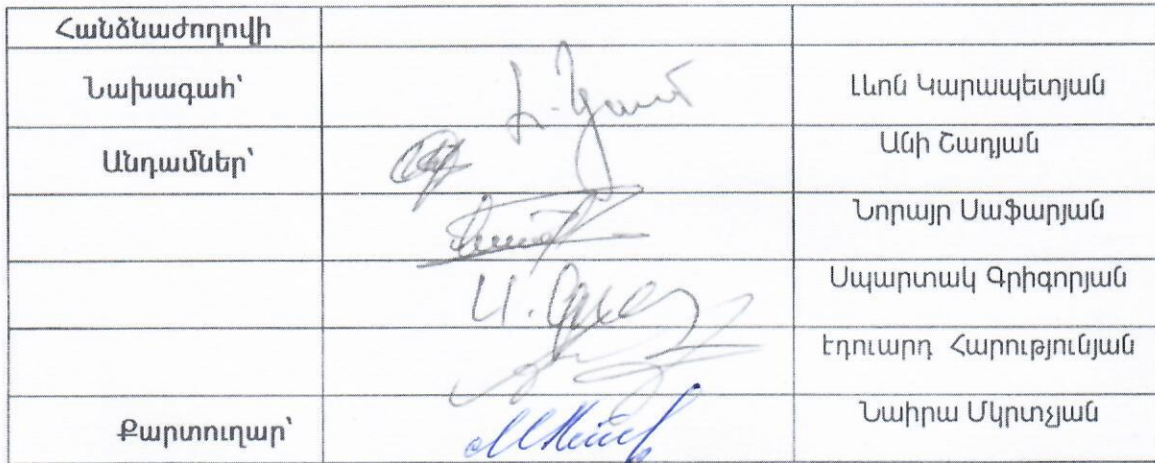 Հանձնաժողովի
Նախագահ՝ Լևոն Կարապետյան
Անդամներ՝ Անի Շադյան
Նորայր Սաֆարյան
Սպարտակ Գրիգորյան
Էդուարդ Հարությունյան
Քարտուղար՝ Նաիրա Մկրտչյան